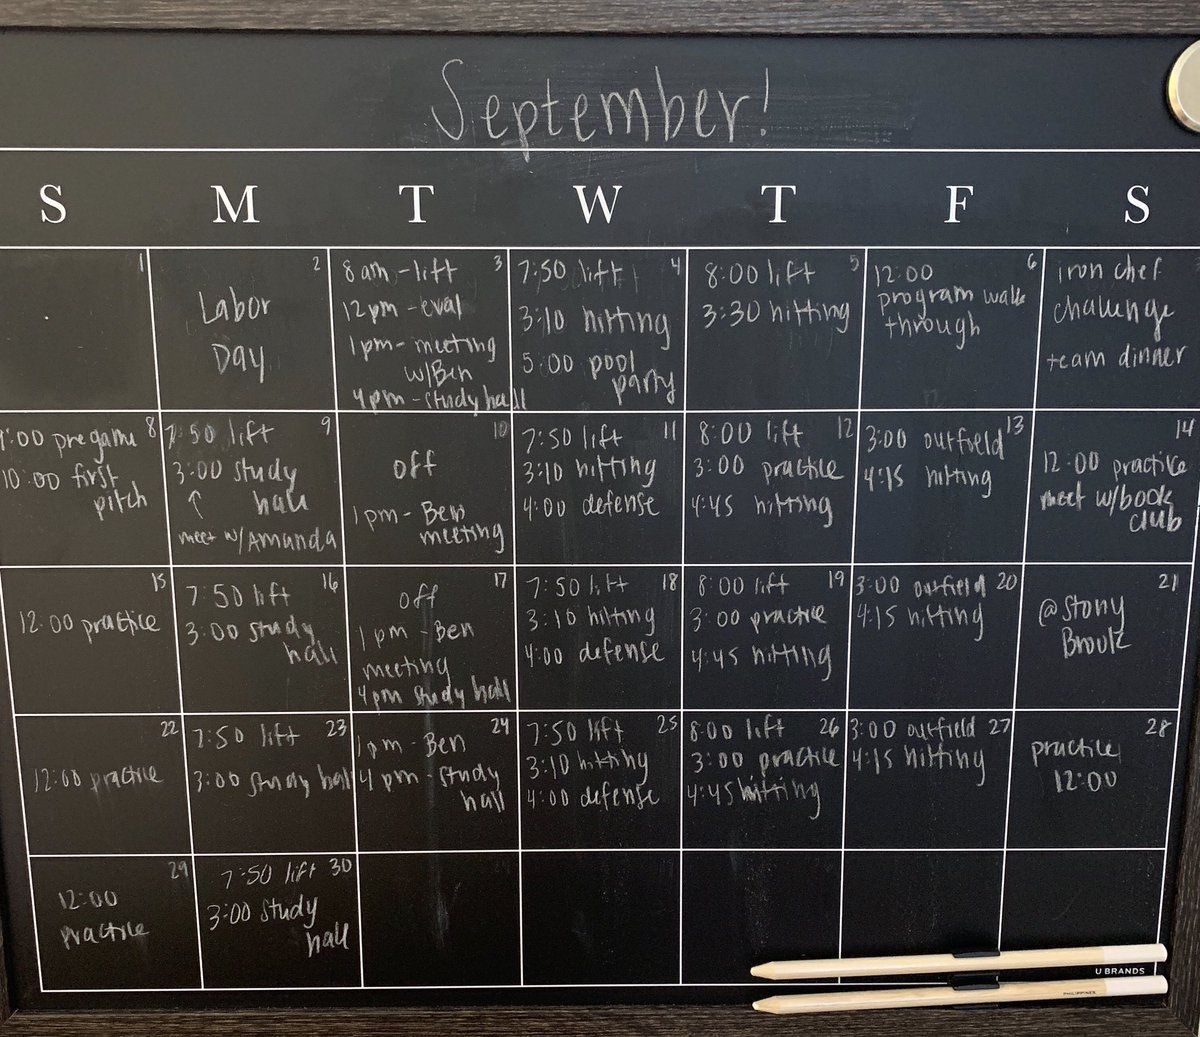 September!
S M T W T F S
1
2
Labor
Day
3
8am - lift
12pm - eval
1pm - meeting
w/Ben
4pm - study hall
4
7:50 lift
3:10 hitting
5:00 pool
party
5
8:00 lift
3:30 hitting
6
12:00
program walk
through
iron chef
challenge
team dinner
8
:00 pregame
10:00 first
pitch
9
7:50 lift
3:00 study
hall
meet w/Amanda
10
off
1pm - Ben
meeting
11
7:50 lift
3:10 hitting
4:00 defense
12
8:00 lift
3:00 practice
4:45 hitting
13
3:00 outfield
4:15 hitting
14
12:00 practice
meet w/book
club
15
12:00 practice
16
7:50 lift
3:00 study
hall
17
off
1pm - Ben
meeting
4pm study hall
18
7:50 lift
3:10 hitting
4:00 defense
19
8:00 lift
3:00 practice
4:45 hitting
20
3:00 outfield
4:15 hitting
21
@Stony
Brook
22
12:00 practice
23
7:50 lift
3:00 study hall
24
1pm - Ben
4pm - study
hall
25
7:50 lift
3:10 hitting
4:00 defense
26
8:00 lift
3:00 practice
4:45 hitting
27
3:00 outfield
4:15 hitting
28
practice
12:00
29
12:00
practice
30
7:50 lift
3:00 study
hall
U BRANDS
PHILIPPINES